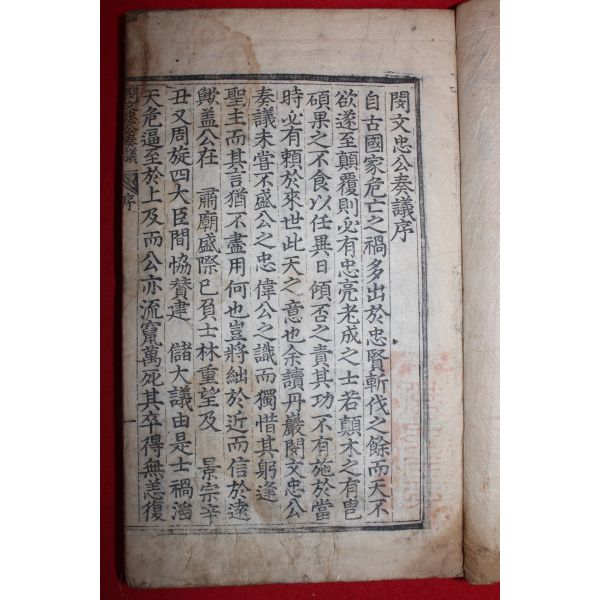 閔文忠公奏議序
自古國家危亡之禍多出於忠賢斬伐之餘而天不
欲遂至顛覆則必有忠亮老成之士若顛木之有甹
碩果之不食以任異日傾否之責其功不有施於當
時必有賴於來世此天之意也余讀丹巖閔文忠公
奏議未嘗不盛公之忠偉公之識而獨惜其躬逢
聖主而其言猶不盡用何也豈將絀於近而信於遠
歟盖公在 肅廟盛際已負士林重望及 景宗辛
丑又周旋四大臣間恊贊建 儲大議由是士禍滔
天危逼至於上及而公亦流竄萬死其卒得無恙復
閔文忠公奏議 序 一